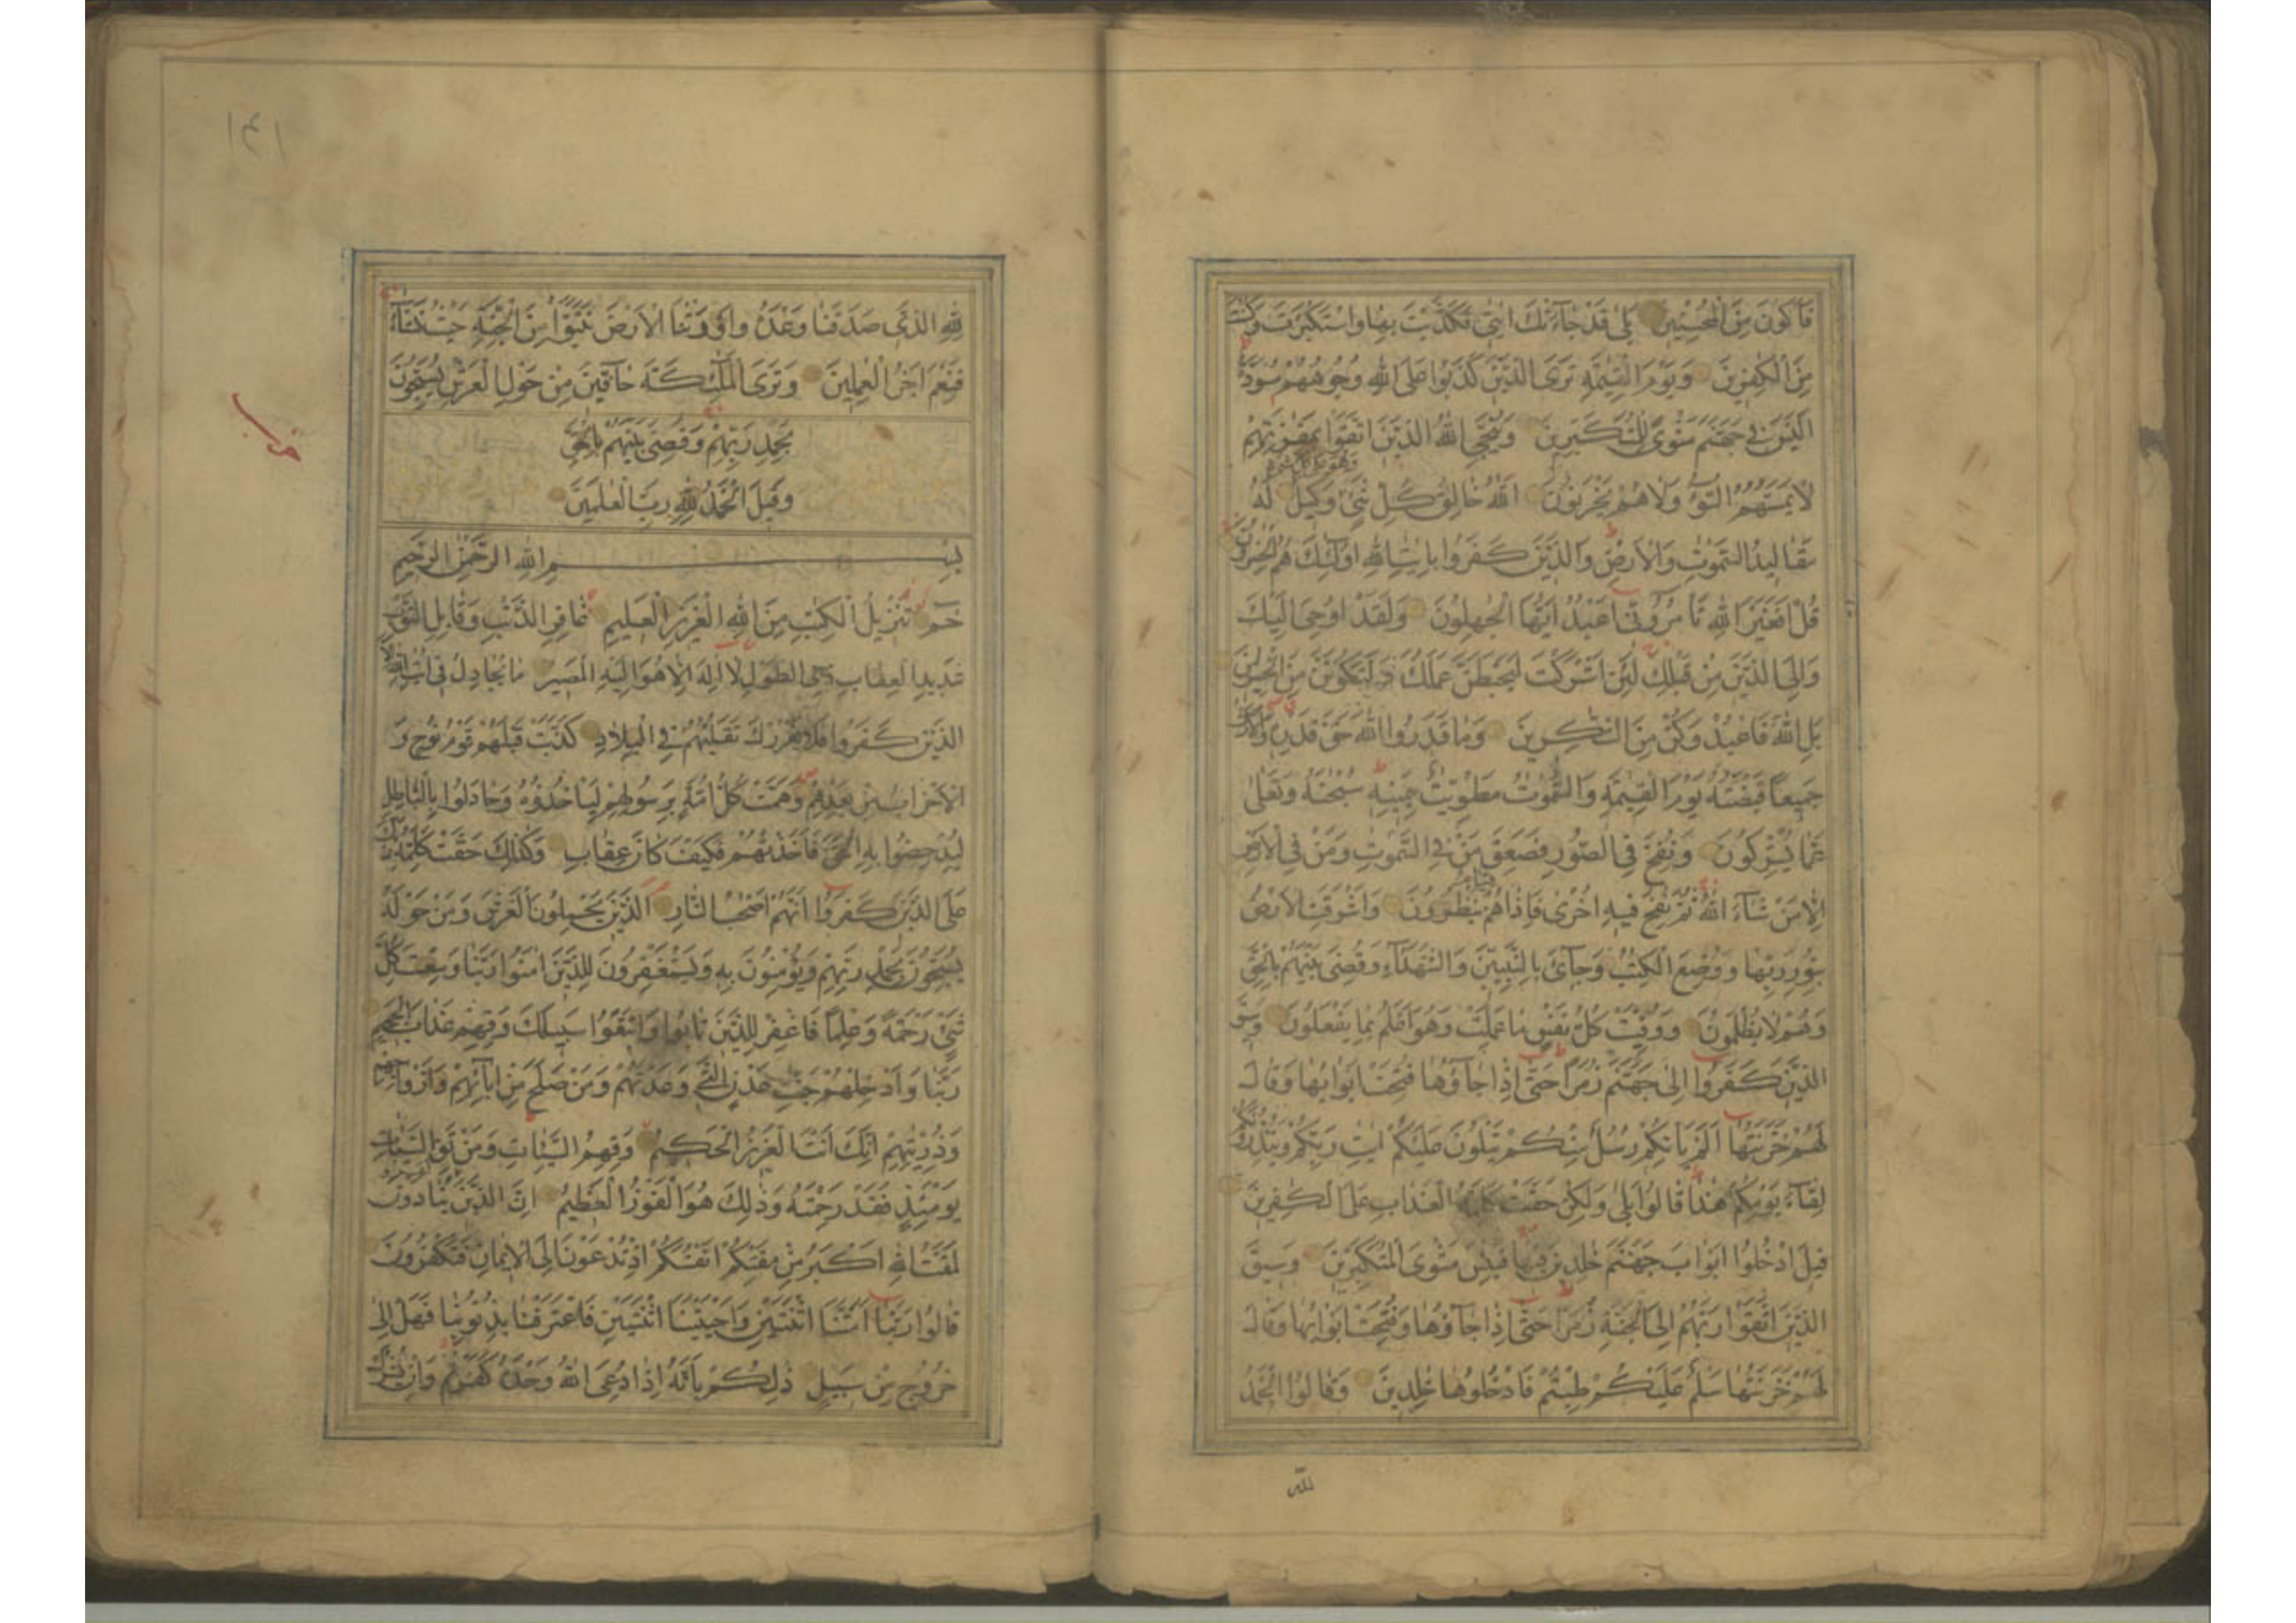 فَاَكُونَ مِنَ الْمُحْسِنِينَ بَلٰى قَدْ جَاءَتْكَ اٰيٰتِى فَكَذَّبْتَ بِهَا وَاسْتَكْبَرْتَ وَكُنْتَ
مِنَ الْكٰفِرِينَ وَيَوْمَ الْقِيٰمَةِ تَرَى الَّذِينَ كَذَبُوا عَلَى اللّٰهِ وُجُوهُهُمْ مُسْوَدَّةٌ
اَلَيْسَ فِى جَهَنَّمَ مَثْوًى لِلْمُتَكَبِّرِينَ وَيُنَجِّى اللّٰهُ الَّذِينَ اتَّقَوْا بِمَفَازَتِهِمْ
لَا يَمَسُّهُمُ السُّوءُ وَلَا هُمْ يَحْزَنُونَ اَللّٰهُ خَالِقُ كُلِّ شَىْءٍ وَهُوَ عَلٰى كُلِّ شَىْءٍ وَكِيلٌ لَهُ
مَقَالِيدُ السَّمٰوٰتِ وَالْاَرْضِ وَالَّذِينَ كَفَرُوا بِاٰيٰتِ اللّٰهِ اُولٰئِكَ هُمُ الْخٰسِرُونَ
قُلْ اَفَغَيْرَ اللّٰهِ تَأْمُرُوۤنِّى اَعْبُدُ اَيُّهَا الْجٰهِلُونَ وَلَقَدْ اُوحِىَ اِلَيْكَ
وَاِلَى الَّذِينَ مِنْ قَبْلِكَ لَئِنْ اَشْرَكْتَ لَيَحْبَطَنَّ عَمَلُكَ وَلَتَكُونَنَّ مِنَ الْخٰسِرِينَ
بَلِ اللّٰهَ فَاعْبُدْ وَكُنْ مِنَ الشّٰكِرِينَ وَمَا قَدَرُوا اللّٰهَ حَقَّ قَدْرِهِ وَالْاَرْضُ
جَمِيعًا قَبْضَتُهُ يَوْمَ الْقِيٰمَةِ وَالسَّمٰوٰتُ مَطْوِيّٰتٌ بِيَمِينِهِ سُبْحٰنَهُ وَتَعٰلٰى
عَمَّا يُشْرِكُونَ وَنُفِخَ فِى الصُّورِ فَصَعِقَ مَنْ فِى السَّمٰوٰتِ وَمَنْ فِى الْاَرْضِ
اِلَّا مَنْ شَاءَ اللّٰهُ ثُمَّ نُفِخَ فِيهِ اُخْرٰى فَاِذَا هُمْ قِيَامٌ يَنْظُرُونَ وَاَشْرَقَتِ الْاَرْضُ
بِنُورِ رَبِّهَا وَوُضِعَ الْكِتٰبُ وَجِاىءَ بِالنَّبِيِّينَ وَالشُّهَدَاءِ وَقُضِىَ بَيْنَهُمْ بِالْحَقِّ
وَهُمْ لَا يُظْلَمُونَ وَوُفِّيَتْ كُلُّ نَفْسٍ مَا عَمِلَتْ وَهُوَ اَعْلَمُ بِمَا يَفْعَلُونَ وَسِيقَ
الَّذِينَ كَفَرُوا اِلٰى جَهَنَّمَ زُمَرًا حَتّٰى اِذَا جَاؤُهَا فُتِحَتْ اَبْوَابُهَا وَقَالَ
لَهُمْ خَزَنَتُهَا اَلَمْ يَأْتِكُمْ رُسُلٌ مِنْكُمْ يَتْلُونَ عَلَيْكُمْ اٰيٰتِ رَبِّكُمْ وَيُنْذِرُونَكُمْ
لِقَاءَ يَوْمِكُمْ هٰذَا قَالُوا بَلٰى وَلٰكِنْ حَقَّتْ كَلِمَةُ الْعَذَابِ عَلَى الْكٰفِرِينَ
قِيلَ ادْخُلُوا اَبْوَابَ جَهَنَّمَ خٰلِدِينَ فِيهَا فَبِئْسَ مَثْوَى الْمُتَكَبِّرِينَ وَسِيقَ
الَّذِينَ اتَّقَوْا رَبَّهُمْ اِلَى الْجَنَّةِ زُمَرًا حَتّٰى اِذَا جَاؤُهَا وَفُتِحَتْ اَبْوَابُهَا وَقَالَ
لَهُمْ خَزَنَتُهَا سَلٰمٌ عَلَيْكُمْ طِبْتُمْ فَادْخُلُوهَا خٰلِدِينَ وَقَالُوا الْحَمْدُ
للّٰه
١٤١
لِلّٰهِ الَّذِى صَدَقَنَا وَعْدَهُ وَاَوْرَثَنَا الْاَرْضَ نَتَبَوَّاُ مِنَ الْجَنَّةِ حَيْثُ نَشَاءُ
فَنِعْمَ اَجْرُ الْعٰمِلِينَ وَتَرَى الْمَلٰئِكَةَ حَافِّينَ مِنْ حَوْلِ الْعَرْشِ يُسَبِّحُونَ
بِحَمْدِ رَبِّهِمْ وَقُضِىَ بَيْنَهُمْ بِالْحَقِّ
وَقِيلَ الْحَمْدُ لِلّٰهِ رَبِّ الْعٰلَمِينَ
بِسْمِ اللّٰهِ الرَّحْمٰنِ الرَّحِيمِ
حٰمٓ تَنْزِيلُ الْكِتٰبِ مِنَ اللّٰهِ الْعَزِيزِ الْعَلِيمِ غَافِرِ الذَّنْبِ وَقَابِلِ التَّوْبِ
شَدِيدِ الْعِقَابِ ذِى الطَّوْلِ لَا اِلٰهَ اِلَّا هُوَ اِلَيْهِ الْمَصِيرُ مَا يُجَادِلُ فِى اٰيٰتِ اللّٰهِ اِلَّا
الَّذِينَ كَفَرُوا فَلَا يَغْرُرْكَ تَقَلُّبُهُمْ فِى الْبِلَادِ كَذَّبَتْ قَبْلَهُمْ قَوْمُ نُوحٍ وَ
الْاَحْزَابُ مِنْ بَعْدِهِمْ وَهَمَّتْ كُلُّ اُمَّةٍ بِرَسُولِهِمْ لِيَأْخُذُوهُ وَجَادَلُوا بِالْبَاطِلِ
لِيُدْحِضُوا بِهِ الْحَقَّ فَاَخَذْتُهُمْ فَكَيْفَ كَانَ عِقَابِ وَكَذٰلِكَ حَقَّتْ كَلِمَةُ رَبِّكَ
عَلَى الَّذِينَ كَفَرُوا اَنَّهُمْ اَصْحٰبُ النَّارِ اَلَّذِينَ يَحْمِلُونَ الْعَرْشَ وَمَنْ حَوْلَهُ
يُسَبِّحُونَ بِحَمْدِ رَبِّهِمْ وَيُؤْمِنُونَ بِهِ وَيَسْتَغْفِرُونَ لِلَّذِينَ اٰمَنُوا رَبَّنَا وَسِعْتَ كُلَّ
شَىْءٍ رَحْمَةً وَعِلْمًا فَاغْفِرْ لِلَّذِينَ تَابُوا وَاتَّبَعُوا سَبِيلَكَ وَقِهِمْ عَذَابَ الْجَحِيمِ
رَبَّنَا وَاَدْخِلْهُمْ جَنّٰتِ عَدْنٍ الَّتِى وَعَدْتَهُمْ وَمَنْ صَلَحَ مِنْ اٰبَائِهِمْ وَاَزْوَاجِهِمْ
وَذُرِّيّٰتِهِمْ اِنَّكَ اَنْتَ الْعَزِيزُ الْحَكِيمُ وَقِهِمُ السَّيِّاٰتِ وَمَنْ تَقِ السَّيِّاٰتِ
يَوْمَئِذٍ فَقَدْ رَحِمْتَهُ وَذٰلِكَ هُوَ الْفَوْزُ الْعَظِيمُ اِنَّ الَّذِينَ كَفَرُوا يُنَادَوْنَ
لَمَقْتُ اللّٰهِ اَكْبَرُ مِنْ مَقْتِكُمْ اَنْفُسَكُمْ اِذْ تُدْعَوْنَ اِلَى الْاِيمَانِ فَتَكْفُرُونَ
قَالُوا رَبَّنَا اَمَتَّنَا اثْنَتَيْنِ وَاَحْيَيْتَنَا اثْنَتَيْنِ فَاعْتَرَفْنَا بِذُنُوبِنَا فَهَلْ اِلٰى
خُرُوجٍ مِنْ سَبِيلٍ ذٰلِكُمْ بِاَنَّهُ اِذَا دُعِىَ اللّٰهُ وَحْدَهُ كَفَرْتُمْ وَاِنْ يُشْرَكْ